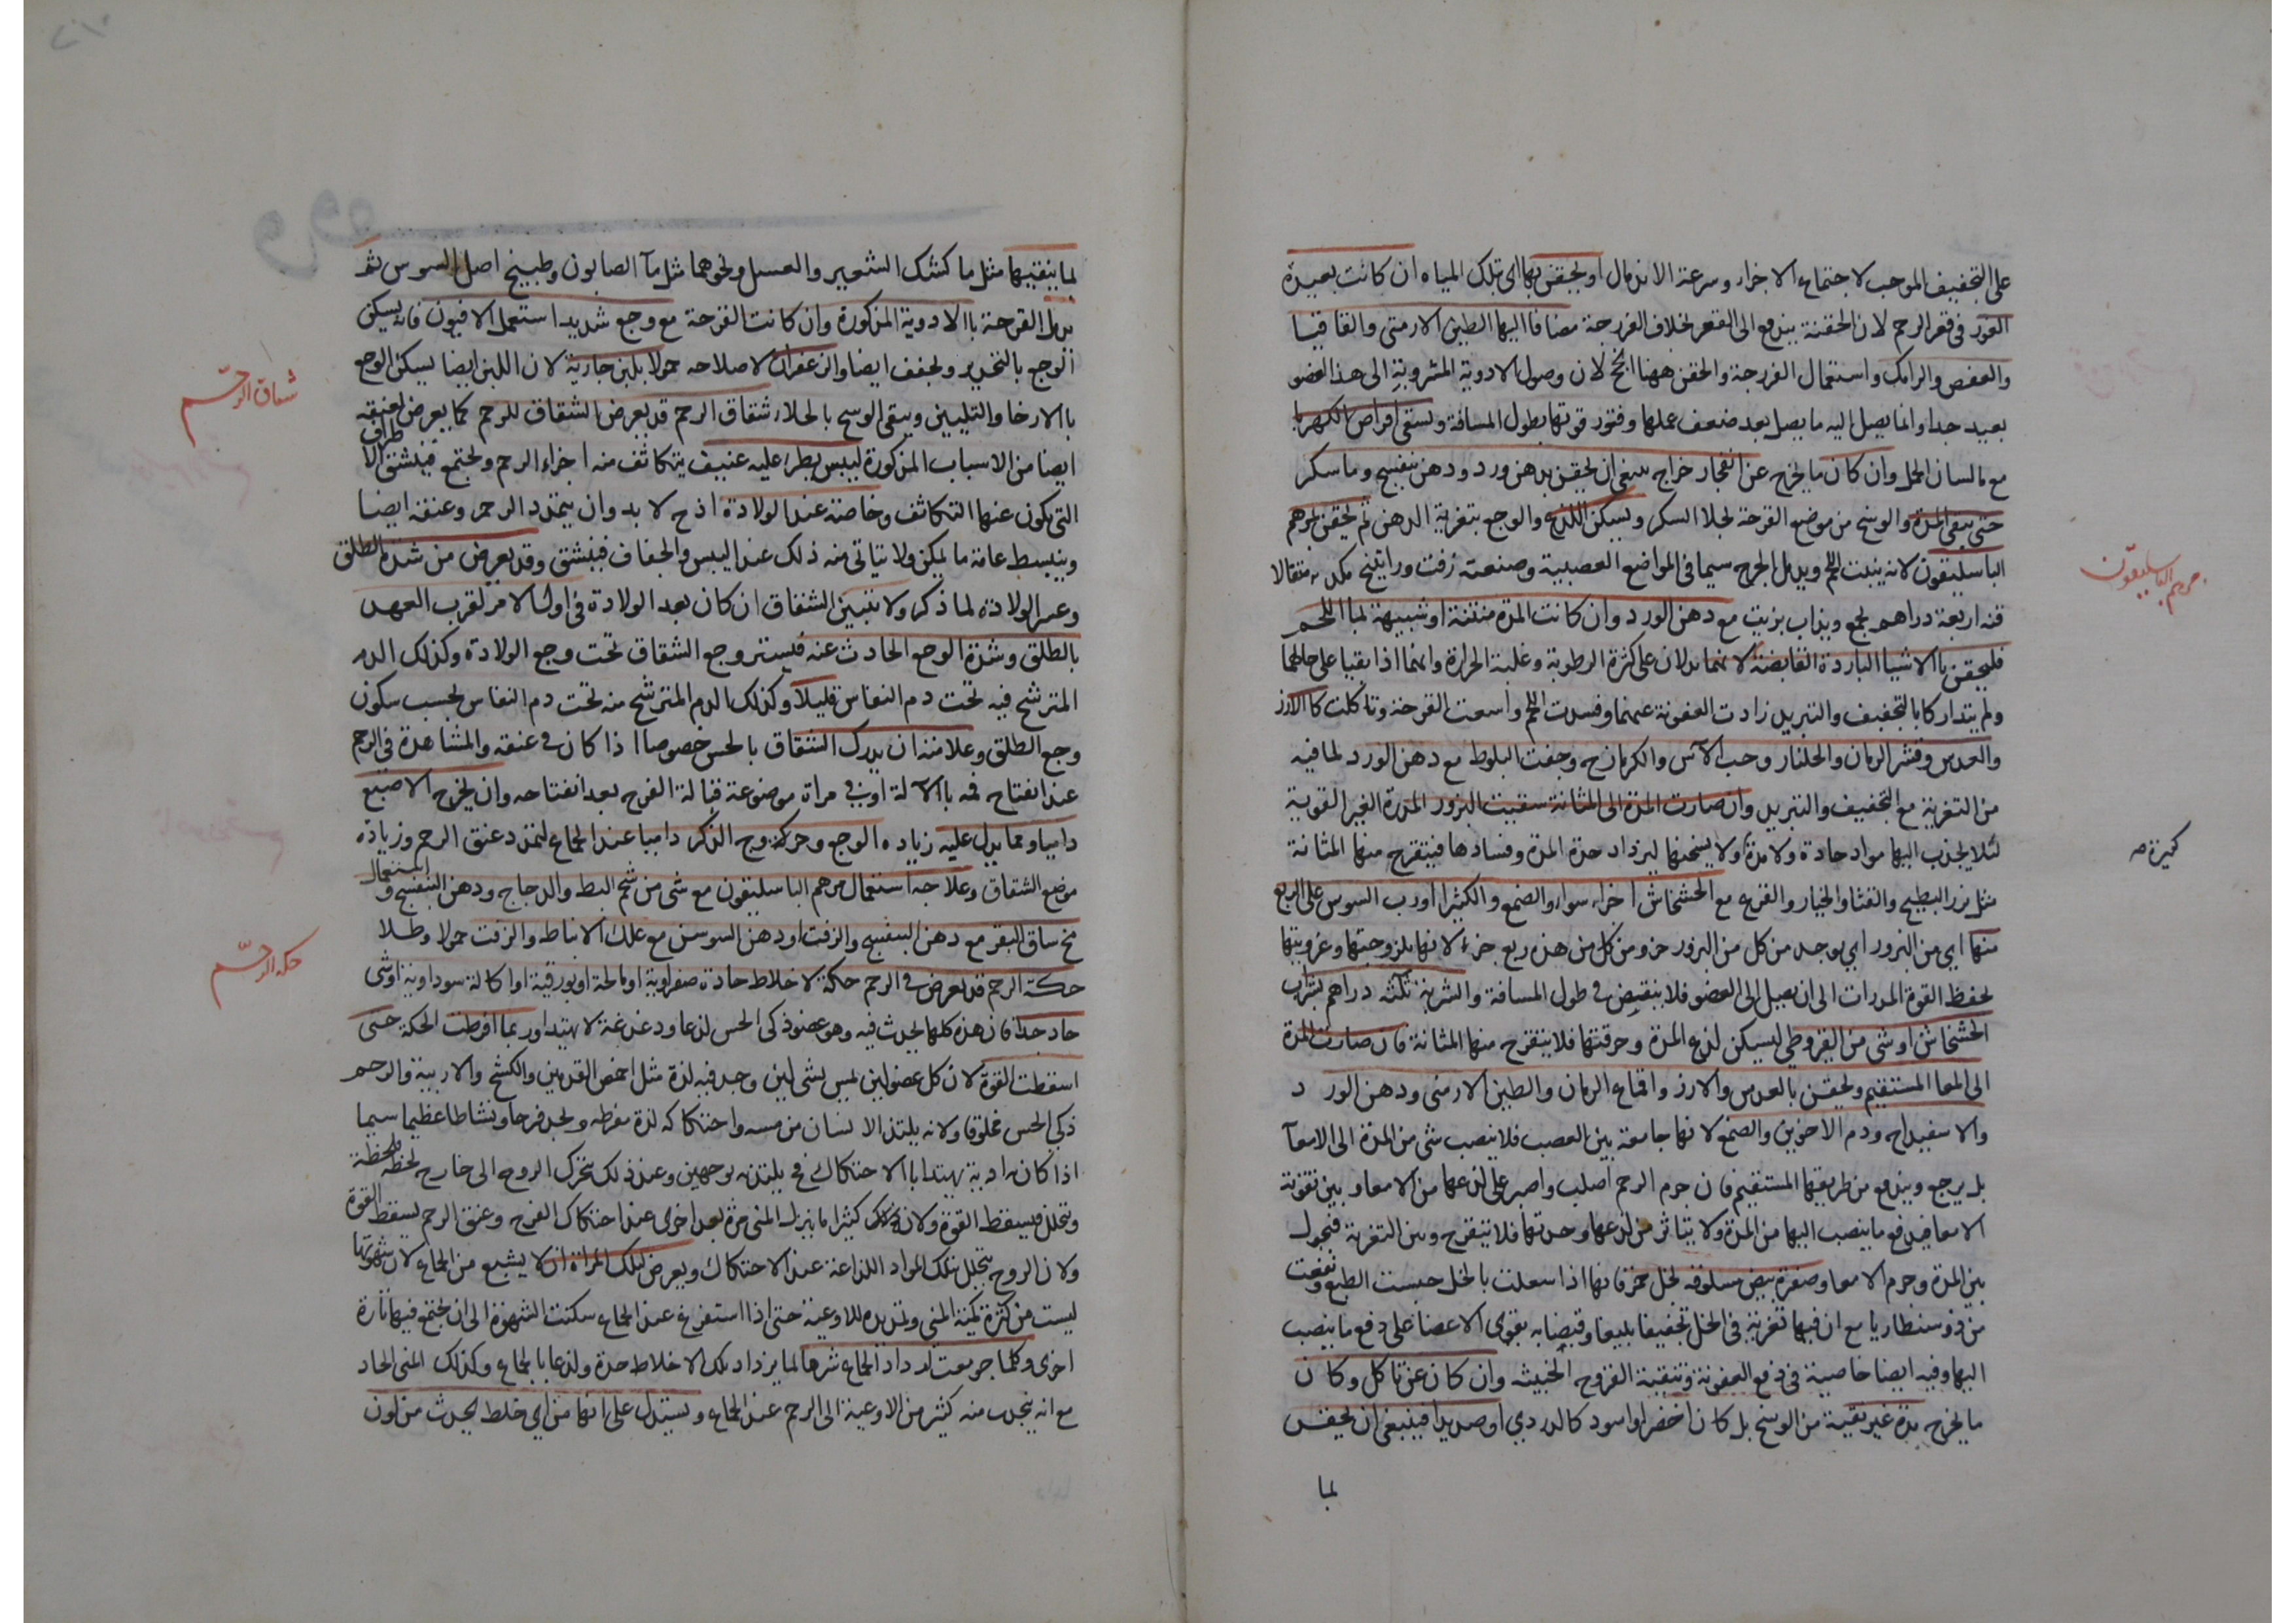 على التجفيف الموجب لاجتماع الاجزاء وسرعة الاندمال او يحقن بها اى بتلك المياه ان كانت بعيدة
الغور فى قعر الرحم لان الحقنة يندفع الى القعر بخلاف الفرزجة مضافا اليها الطين الارمنى والقاقيا
والعفص والرامك واستعمال الفرزجة والحقن ههنا انجح لان وصول الادوية المشروبة الى هذا العضو
بعيد جدا وانما يصل اليه ما يصل بعد ضعف عملها وفتور قوتها بطول المسافة ويسقى اقراص الكهربا
مع ما لسان الحمل وان كان ما يخرج عن انفجار خراج ينبغى ان يحقن بدهن ورد ودهن بنفسج وما سكر
حتى ينقى المدة والوسخ من موضع القرحة لجلا السكر ويسكن اللذع والوجع بتغرية الدهن ثم يحقن بمرهم
الباسليقون لانه ينبت اللحم ويدمل الجرح سيما فى المواضع العصبية وصنعته زفت وراتينج مكد ٢٠ مثقالا
قنه اربعة دراهم يجمع ويذاب بزيت مع دهن الورد وان كانت المدة منتنة او شبيهة بما اللحم
فليحقن باالاشيا الباردة القابضة لانهما يدلان على كثرة الرطوبة وغلبة الحرارة وانهما اذا بقيا على حالهما
ولم يتداركا بالتجفيف والتبريد زادت العفونة عنهما وفسدت اللحم واسعت القرحة وتاكلت كاالارز
والعدس وقشر الرمان والجلنار وحب الآس والكرمازج وجفت البلوط مع دهن الورد لما فيه
من التغرية مع التجفيف والتبريد وان صارت المدة الى المثانة سقيت البزور المدرة الغير القوية
لئلا يجذب اليها مواد حادة ولا مدة ولا يسخنها ليزداد حدة المدة وفسادها فيتقرح منها المثانة
مثل بزر البطيخ والقثا والخيار والقرع مع الخشخاش اجزاء سوا والصمغ والكثيرا ورب السوس على الربع
منها اي من البزور اي يوجد من كل من البزور جزو من كل من هذه ربع جزء لانها بلزوجتها وغرويتها
يحفظ القوة المدرات الى ان يصل الى العضو فلا ينقبض فى طول المسافة والشربة ثلثة دراهم بشراب
الخشخاش او شى من القيروطي ليسكن لذع المدة وحرقتها فلا يتقرح منها المثانة فان صارت المدة
الى المعا المستقيم يحقن بالعدس والارز واقماع الرمان والطين الارمنى ودهن الورد
والاسفيداج ودم الاخوين والصمغ لانها جامعة بين العصب فلا ينصب شى من المدة الى الامعآ
بل يرجع ويندفع من طريقها المستقيم فان جرم الرحم اصلب واصبر على لذعها من الامعا وبين تقوية
الامعا فيدفع ما ينصب اليها من المدة ولا يتاثر من لذعها وحدتها فلا يتقرح وبين التغرية فيحول
بين المدة وجرم الامعا وصفرة بيض مسلوقه بخل خمر فانها اذا سعلت بالخل حبست الطبع ونفعت
من ذوسنطاريا مع ان فيها تغرية فى الخل تجفيفا بليغا وقبضا به يقوى الاعضا على دفع ما ينصب
اليها وفيه ايضا خاصية فى دفع العفونة وتنقية القروح الخبيثه وان كان عن تاكل وكان
ما يخرج مدة غير نقية من الوسخ بل كان اخضر او اسود كالدردي او صديدا فينبغى ان يحقن
لما
مرهم الباسليقون
لما ينقيها مثل ما كشك الشعير والعسل ونحوهما مثل مآ الصابون وطبيخ اصل السوس ثم
يدمل القرحة باالادوية المذكورة وان كانت القرحة مع وجع شديد استعمل الافيون فانه يسكن
الوجع بالتخدير ويجفف ايضا والزعفران لاصلاحه حمولا بلبن جارية لان اللبن ايضا يسكن الوجع
باالارخا والتليين وينقى الوسخ بالجلا، شقاق الرحم قد يعرض الشقاق للرحم كما يعرض لعنيقه
ايضا من الاسباب المذكورة ليبس يطرا عليه عنيف يتكاثف منه اجزاء الرحم ويجتمع فينشق الاطراف
التي يكون عنها التكاثف وخاصته عند الولادة اذ ح لا بد وان يتمدد الرحم وعنقه ايضا
وينبسط غاية ما يمكن ولا يتاتى منه ذلك عند اليبس والجفاف فينشق وقد يعرض من شدة الطلق
وعسر الولادة لما ذكر ولا يتبين الشقاق ان كان بعد الولادة فى اول الامر لقرب العهد
بالطلق وشدة الوجع الحادث عنه فيستر وجع الشقاق تحت وجع الولادة وكذلك الدم
المترشح فيه تحت دم النفاس قليلا وكذلك الدم المترشح منه تحت دم النفاس بحسب سكون
وجع الطلق وعلامته ان يدرك الشقاق بالحس خصوصا اذا كان فى عنقه والمشاهدة فى الرحم
عند انفتاح فمه باالآلة او فى مراة موضوعة قبالة الفرج بعد انفتاحه وان يخرج الاصبع
داميا ومما يدل عليه زياده الوجع وحركة وج الذكر داميا عند الجماع لتمدد عنق الرحم وزيادة
موضع الشقاق وعلاجه استعمال مرهم الباسليقون مع شى من شحم البط والدجاج ودهن البنفسج واستعمال
مخ ساق البقر مع دهن البنفسج والزفت او دهن السوسن مع علك الانباط والزفت حمولا وطلا
حكة الرحم قد يعرض فى الرحم حكة لاخلاط حادة صفراوية او مالحة او بورقية او اكالة سوداوية او منى
حاد جدا فان هذه كلها يحدث فيه وهو عضو ذكى الحس لذعا ودغدغة لا يهتدا وربما افرطت الحكة حتى
اسقطت القوة لان كل عضو لين لمس بشى لين وجد فيه لذة مثل اخمص القدمين والكشح والاربية والرحم
ذكى الحس مخلوقا ولانه يلتذ الانسان من مسه واحتكاكه لذة مفرطه ويجد فرحا ونشاطا عظيما سيما
اذا كان به ادبة يهتدا باالاحتكاك فح يلتذ به بوجهين وعند ذلك يتحرك الروح الى خارج لحظة لحظة
ويتحلل فيسقط القوة ولان كثيرا ما ينزل المنى مرة بعد اخرى عند احتكاك الفرج وعنق الرحم ليسقط القوة
ولان الروح يتحلل بتلك المواد اللذاعة عند الاحتكاك ويعرض لتلك المراة ان لا يشبع من الجماع لان شهوتها
ليست من كثرة كمية المنى وتمديده للاوعية حتى اذا استفرغ عند الجماع سكنت الشهوة الى ان يجتمع فيها تارة
اخرى وكلما جومعت ازداد الجماع شرها لما يزداد تلك الاخلاط حدة ولذعا بالجماع وكذلك المنى الحاد
مع انه ينجدب منه كثير من الاوعية الى الرحم عند الجماع ويستدل على انها من اي خلط يحدث من لون
شقاق الرحم
حكة الرحم